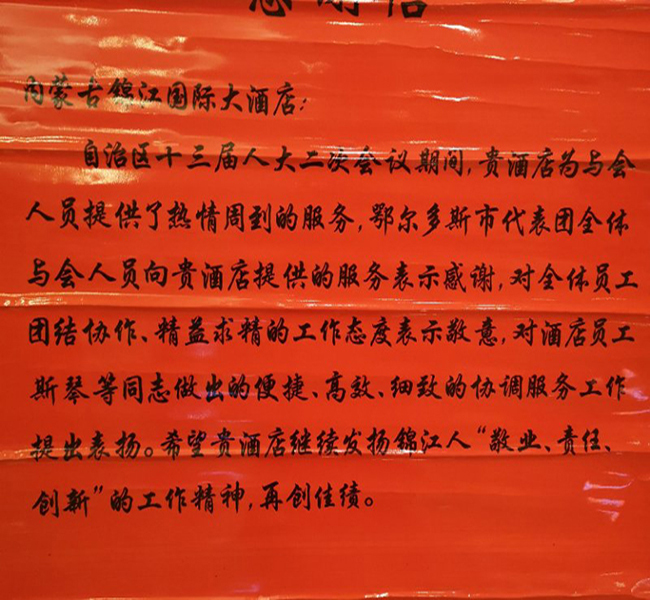 感谢信
内蒙古錦江国际大酒店：
自治区十三届人大二次会议期间，贵酒店为与会
人员提供了热情周到的服务，鄂尔多斯市代表团全体
与会人员向贵酒店提供的服务表示感谢，对全体员工
团结协作、精益求精的工作态度表示敬意，对酒店员工
斯琴等同志做出的便捷、高效、细致的协调服务工作
提出表扬。希望贵酒店继续发扬錦江人“敬业、责任、
创新”的工作精神，再创佳绩。